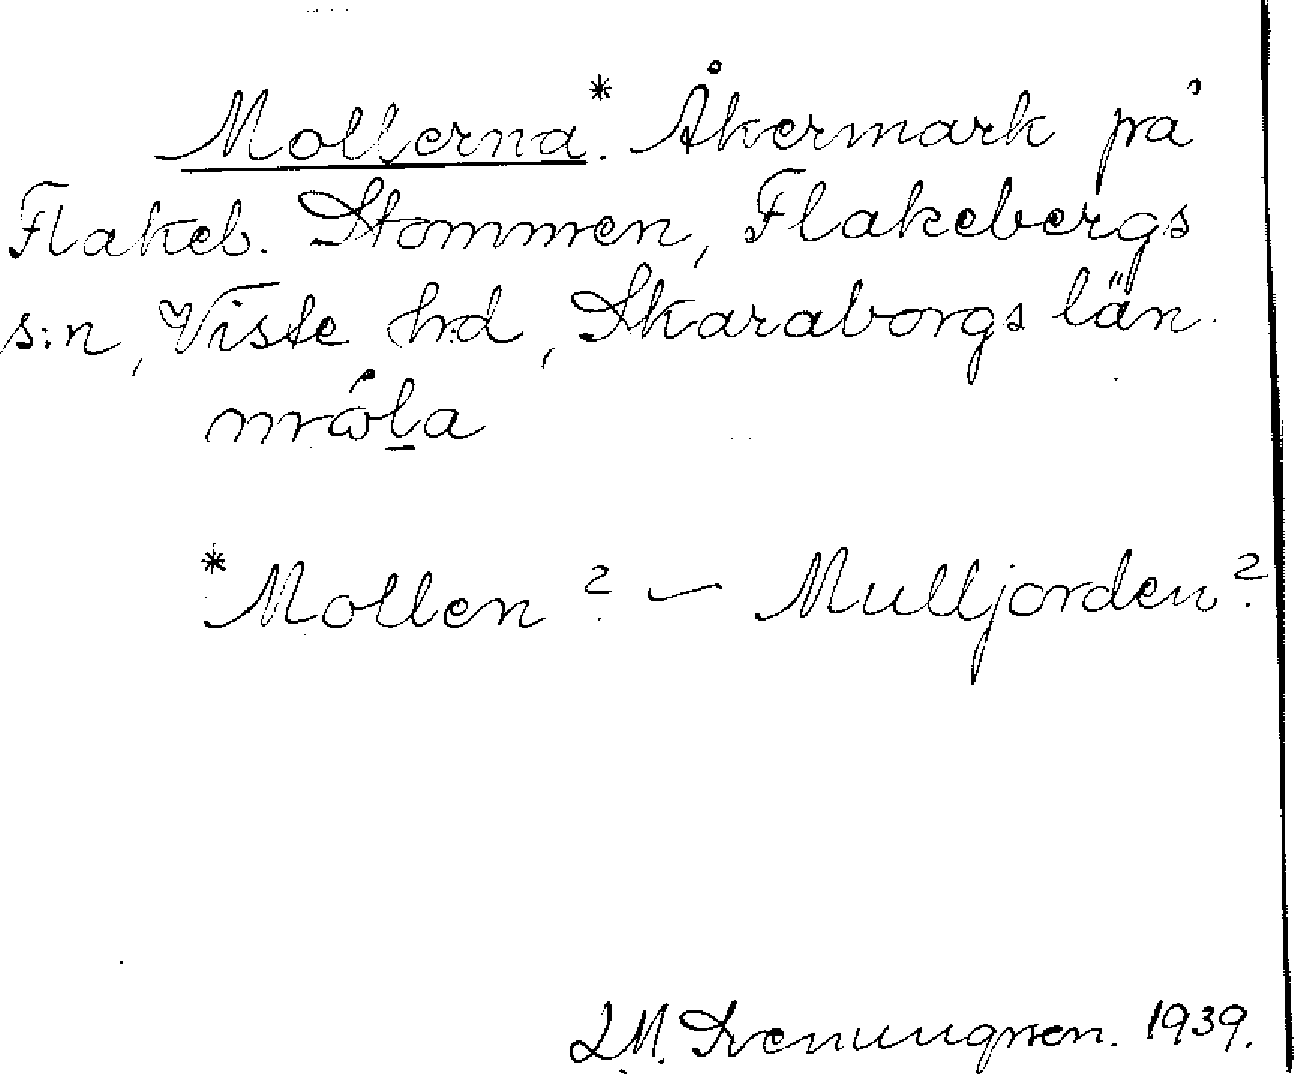 Mollerna.* Åkermark på
Flakeb. Stommen, Flakebergs
s:n, Viste hd, Skaraborgs län.
*Mollen? — Mulljorden?
I.M. Svenungsson. 1939.